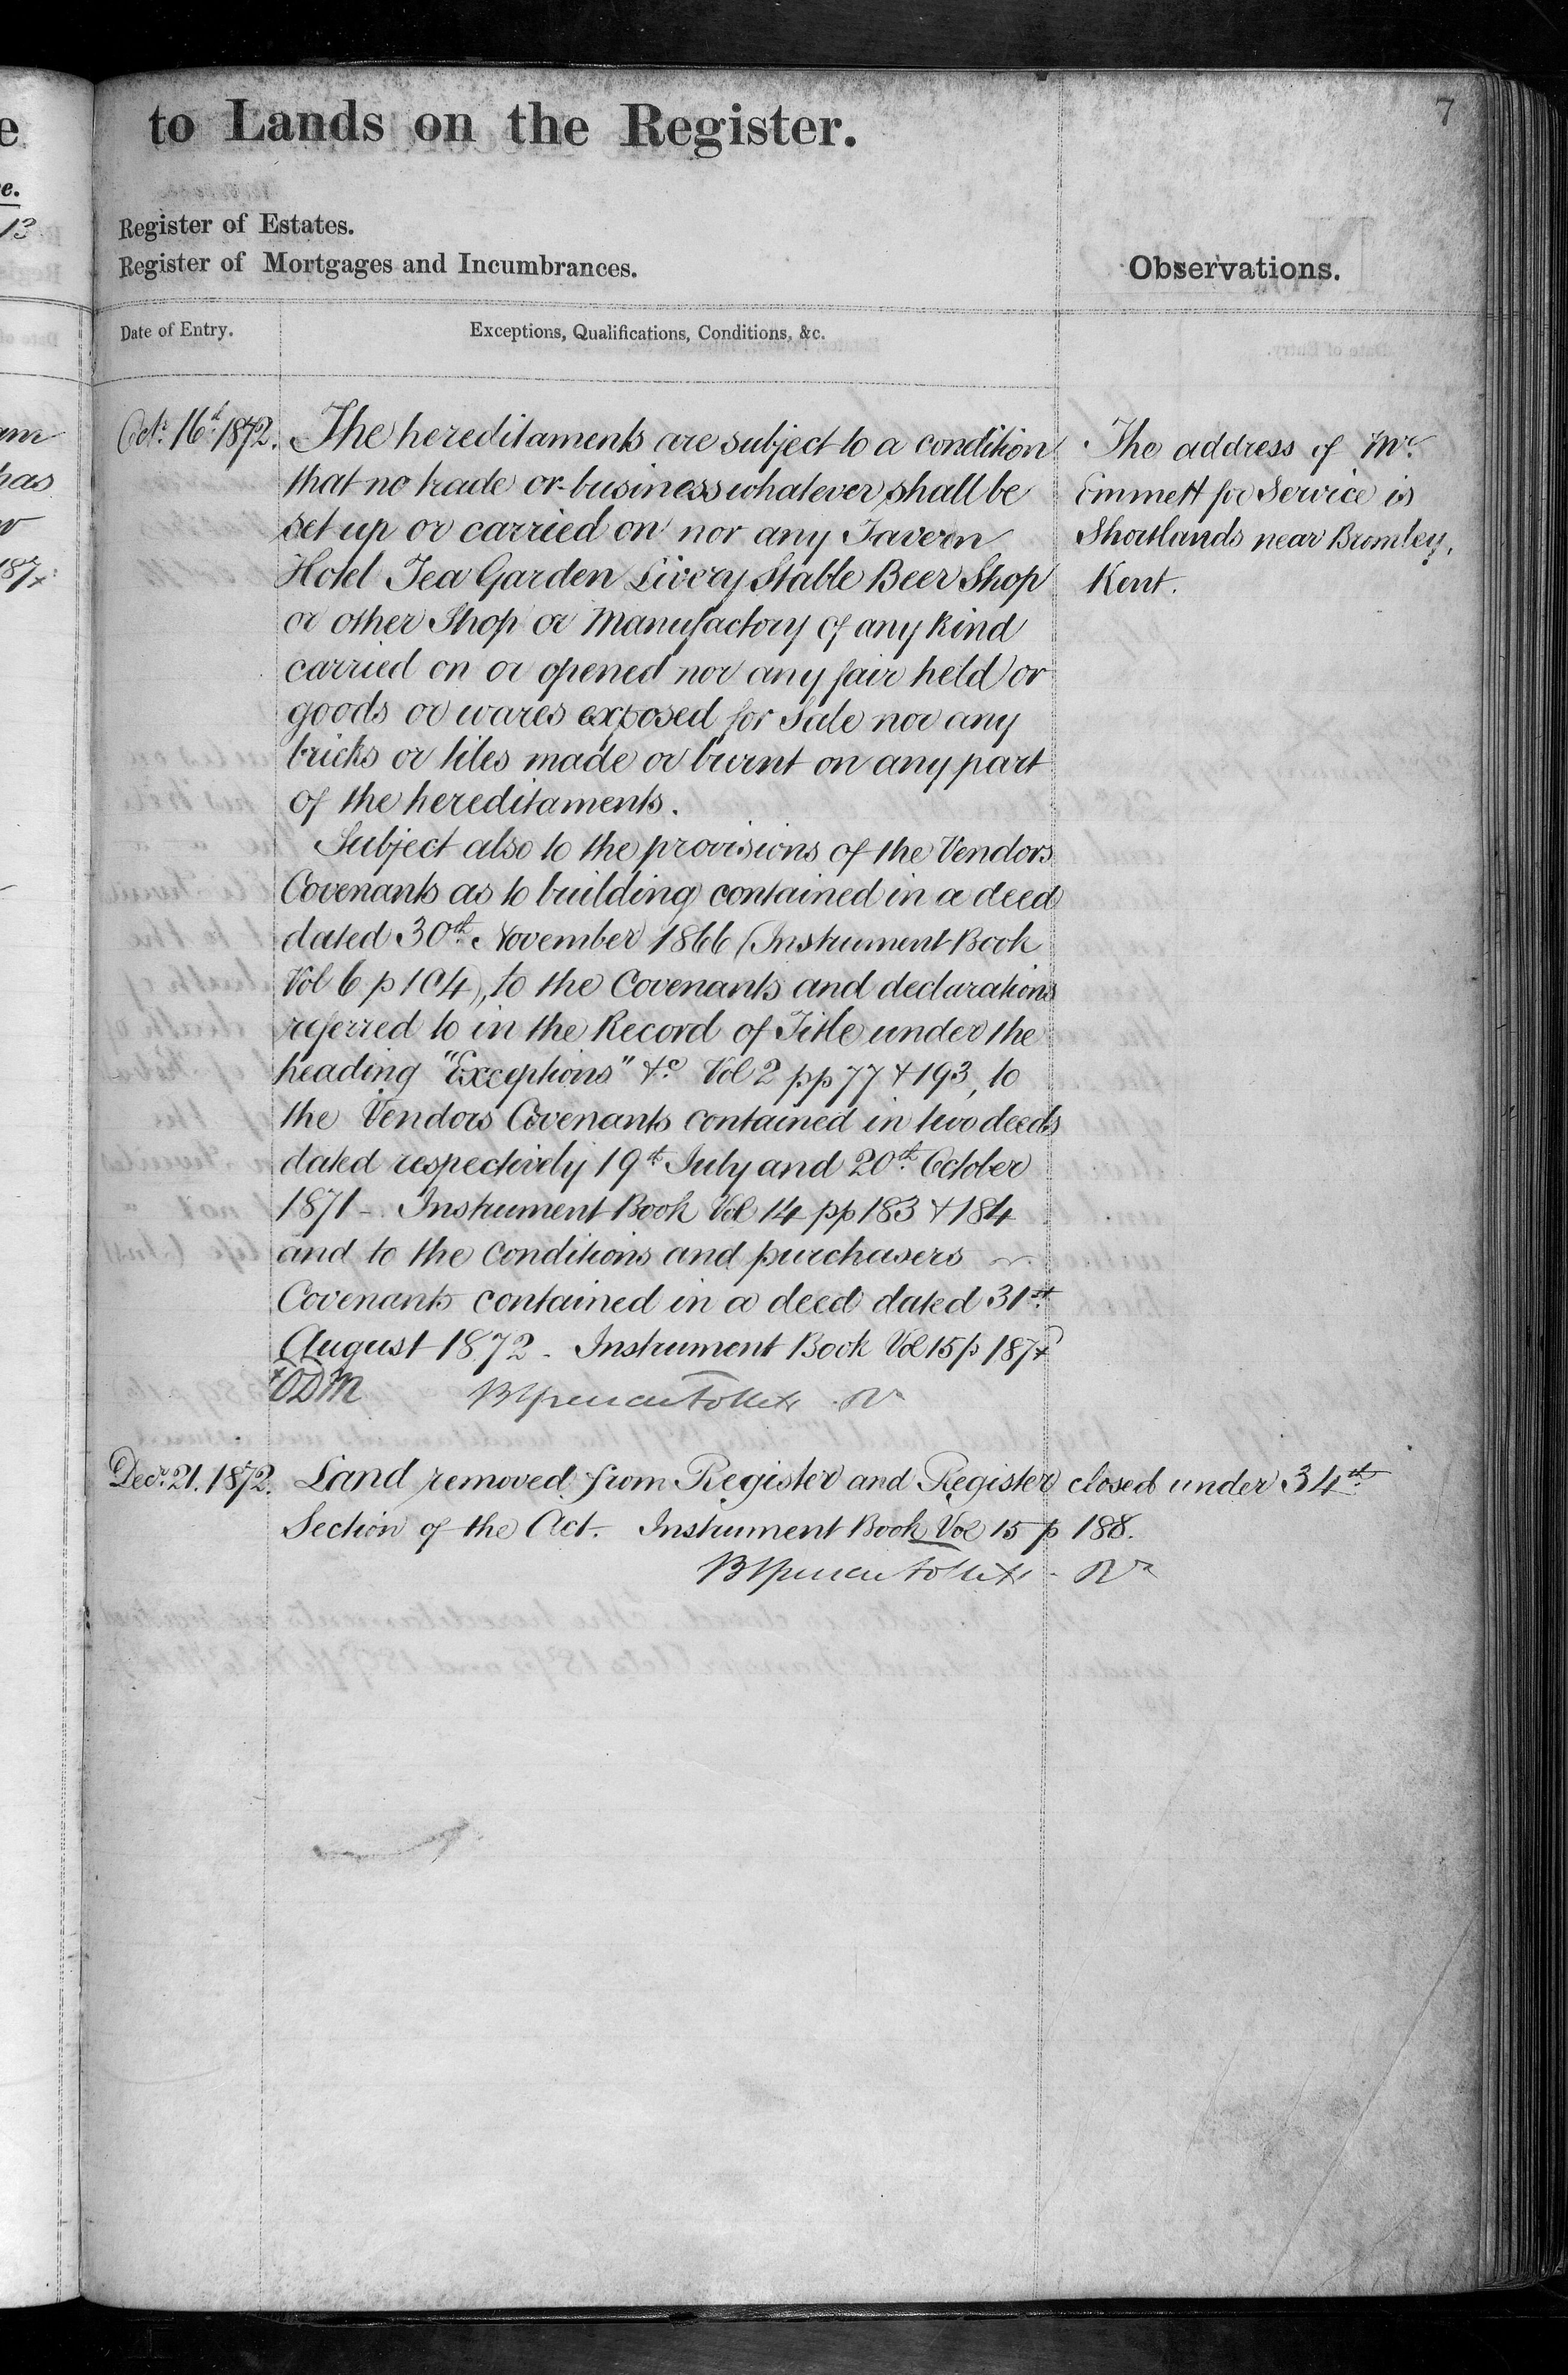 7
to Lands on the Register.
Register of Estates.
Register of Mortgages and Incumbrances.
Observations.
Date of Entry.
Exceptions, Qualifications, Conditions, &c.
Octr. 16th. 1872.
The hereditaments are subject to a condition
that no trade or business whatever shall be
set up or carried on nor any Tavern
Hotel Tea Garden Livery Stable Beer Shop
or other Shop or Manufactory of any kind
carried on or opened nor any fair held or
goods or wares exposed for Sale nor any
bricks or tiles made or burnt on any part
of the hereditaments.
Subject also to the provisions of the Vendors
Covenants as to building contained in a deed
dated 30th. November 1866 (Instrument Book
Vol 6 p 104), to the Covenants and declarations
referred to in the Record of Title under the
heading "Exceptions" &c Vol 2 pp 77 & 193, to
the Vendors Covenants contained in two deeds
dated respectively 19th July and 20th. October
1871 - Instrument Book Vol 14 pp 183 & 184
and to the conditions and purchasers
Covenants contained in a deed dated 31st.
August 1872 - Instrument Book Vol 15 p 187
The address of Mr.
Emmett for Service is
Shortlands near Bromley,
Kent.
Decr. 21. 1872.
Land removed from Register and Register closed under 34th
Section of the Act. Instrument Book Vol 15 p 188.